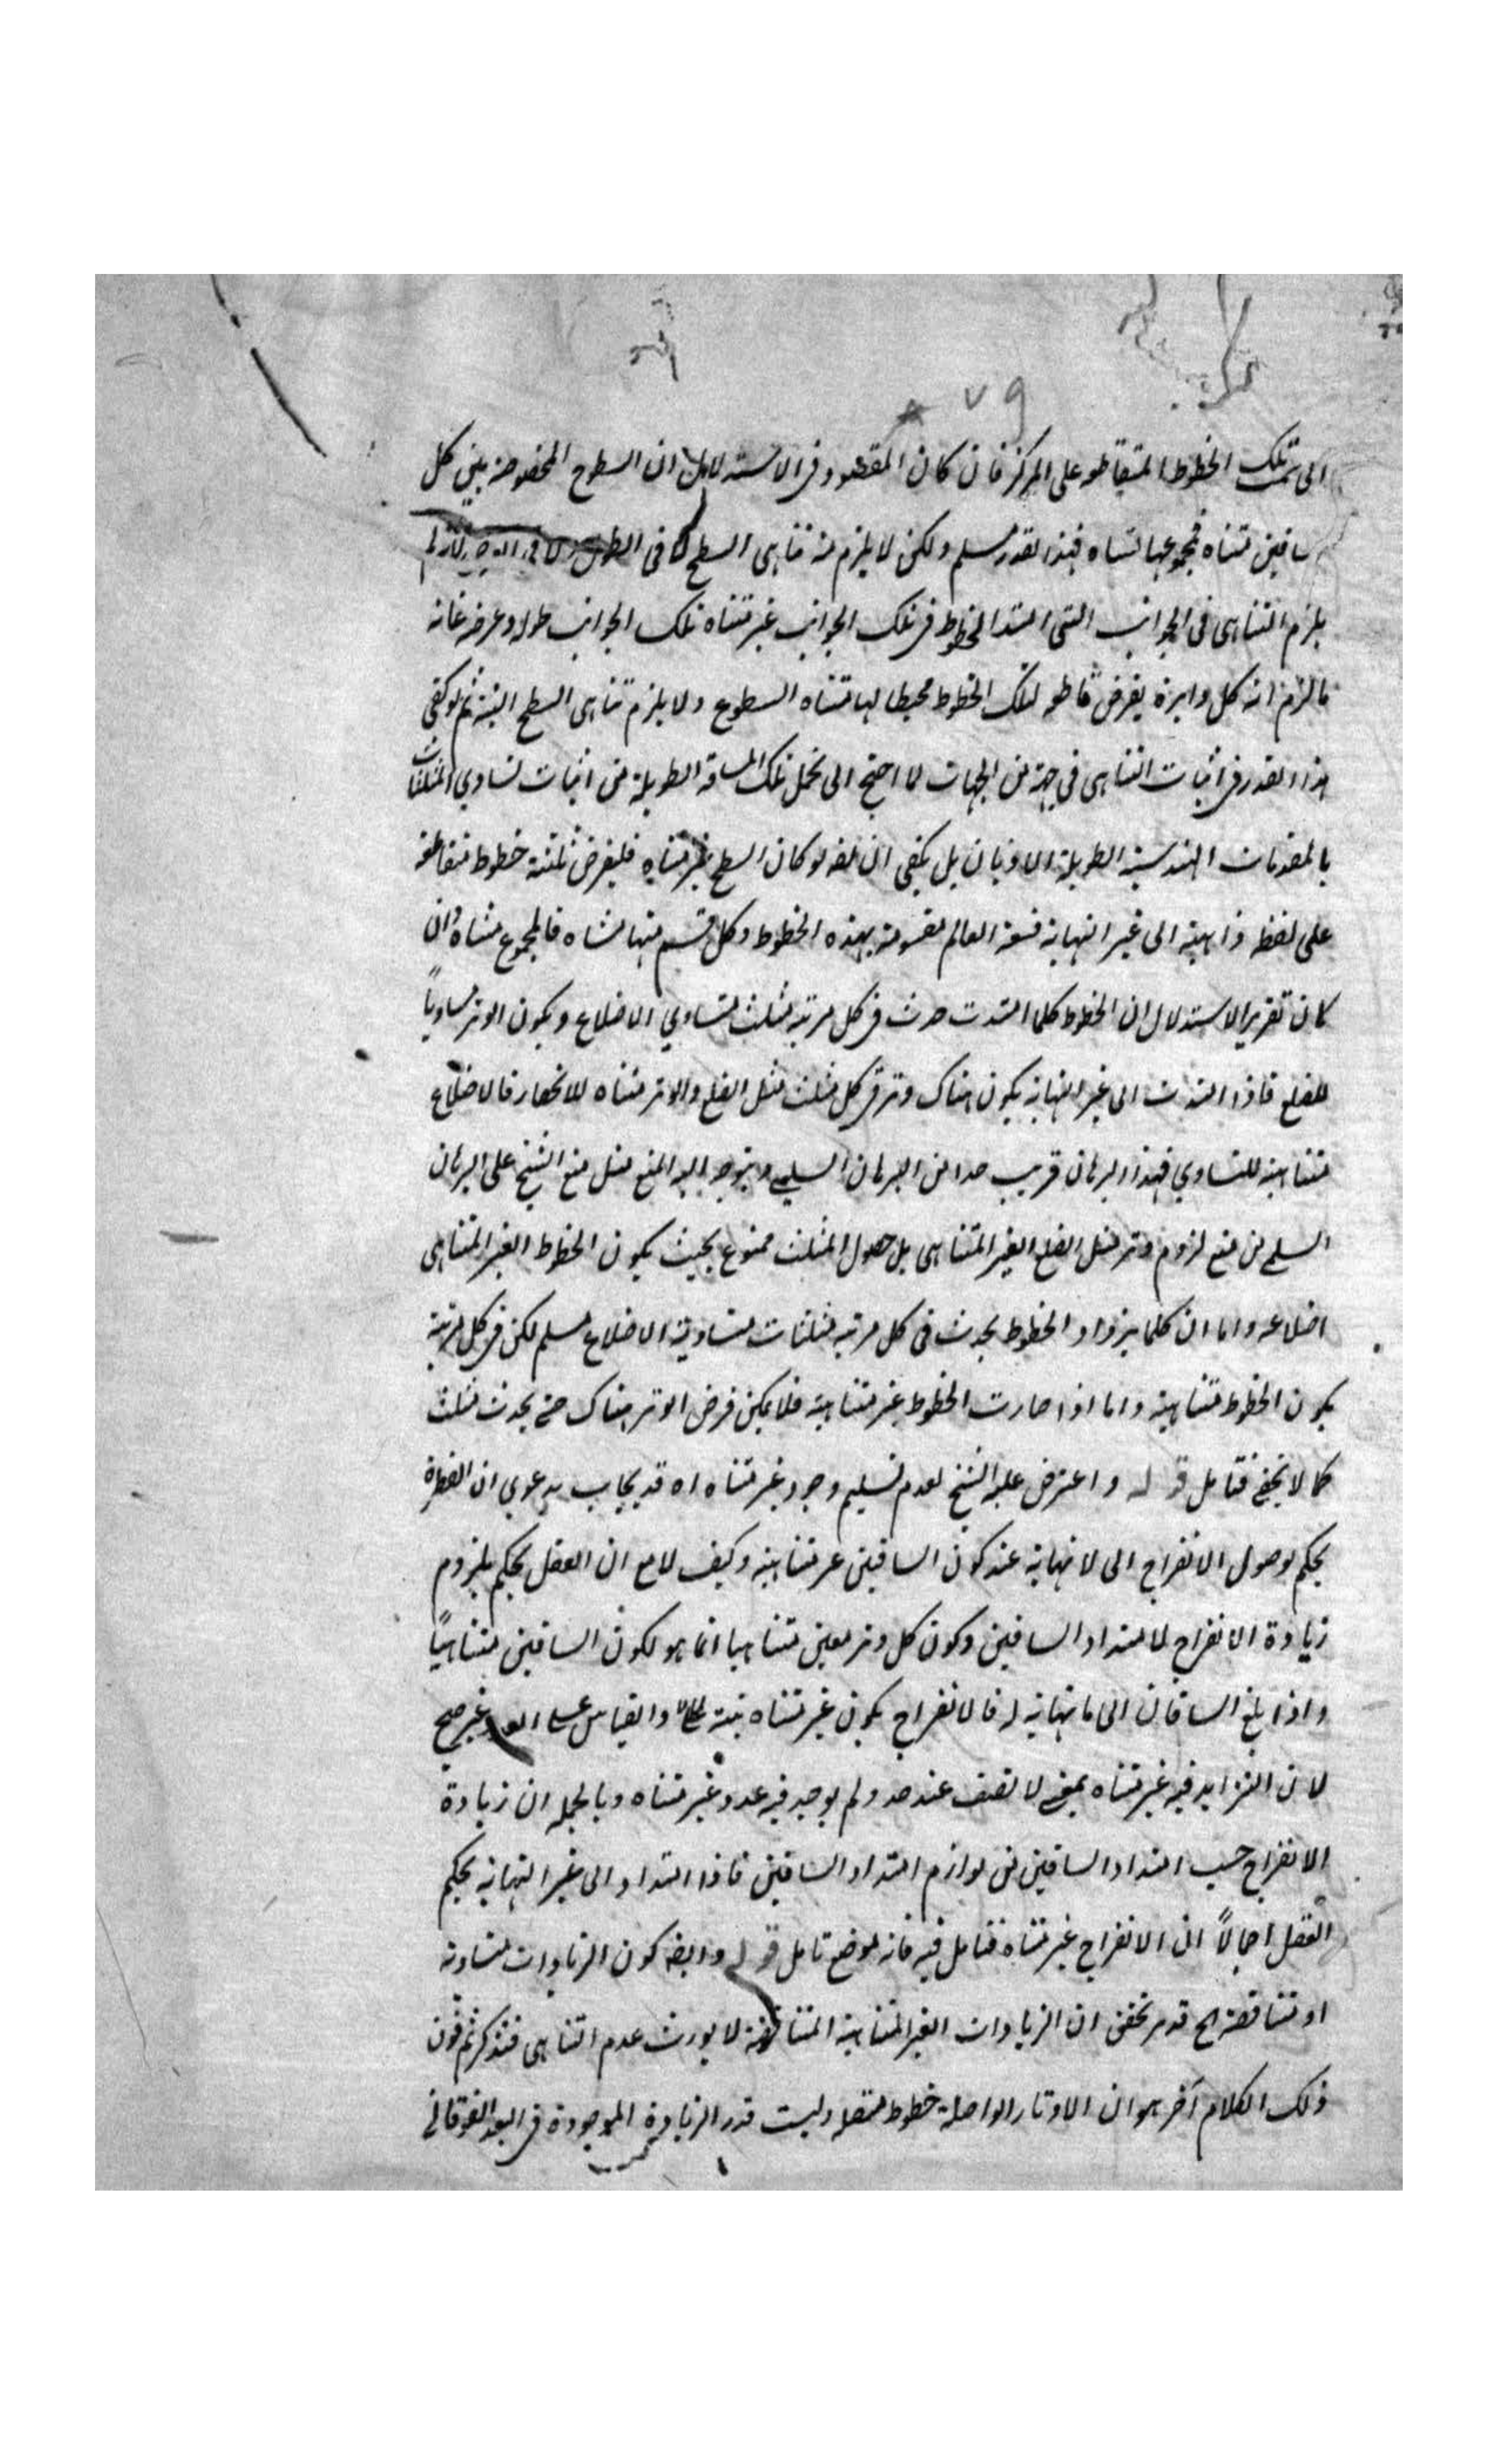 ٧٩
الى تلك الخطوط المتقاطعه على المركز فان كان المقصود فى الاستدلال ان السطوح المخصوصة بين كل
ساقين متناه فمجموعها متناه فهذا القدر مسلم ولكن لا يلزم منه تناهى السطح لا فى الطول ولا فى العرض لانه لم
يلزم التناهى فى الجوانب التى امتد الخطوط فى تلك الجوانب غير متناه تلك الجوانب طولا وعرضا غاية
ما لزم انه كل دايرة يفرض قاطعه لتلك الخطوط محيطا لها متناه السطوح ولا يلزم تناهى السطح البتة ثم لو كفى
هذا القدر فى اثبات التناهى فى جهة من الجهات لما احتج الى تحمل تلك المسافة الطويلة من اثبات تساوي المثلثات
بالمقدمات الهندسية الطويلة الاذيان بل يكفى انه لو كان السطح غير متناه فليفرض ثلثة خطوط متقاطعة
على نقطه ذاهبة الى غير النهاية فسعة العالم مقسومة بهذه الخطوط وكل قسم منها متناه فالمجموع متناه وان
كان تقرير الاستدلال ان الخطوط كلما امتدت حدث فى كل مرتبه مثلث متساوي الاضلاع ويكون الوتر مساوياً
للضلع فاذا امتدت الى غير النهاية يكون هناك وتر فى كل مثلث مثل الضلع والوتر متناه للانحصار فالاضلاع
متناهية للتساوي فهذا البرهان قريب جدا من البرهان السلمى ويتوجه اليه المنع مثل منع الشيخ على البرهان
السلمى من منع لزوم وتر مثل الضلع الغير المتناهى بل حصول المثلث ممنوع بحيث يكون الخطوط الغير المتناهى
اضلاعه واما ان كلما يزداد الخطوط يحدث فى كل مرتبه مثلثات متساوية الاضلاع مسلم لكن فى كل مرتبة
يكون الخطوط متناهية واما اذا صارت الخطوط غير متناهية فلا يمكن فرض الوتر هناك حتى يحدث مثلث
كما لا يخفى فتامل قوله واعترض عليه الشيخ لعدم تسليم وجود غير متناه اه قد يجاب بدعوي ان الفطرة
يحكم بوصول الانفراج الى لا نهاية عند كون الساقين غير متناهية وكيف لا مع ان العقل يحكم بلزوم
زيادة الانفراج لامتداد الساقين وكون كل وتر معين متناهيا انما هو لكون الساقين متناهياً
واذا بلغ الساقان الى ما نهاية له فالانفراج يكون غير متناه والقياس على العدد غير صحيح
لان التزايد فيه غير متناه بمعنى لا تقف عند حد ولم يوجد فيه عدد غير متناه وبالجمله ان زيادة
الانفراج حسب امتداد الساقين من لوازم امتداد الساقين فاذا امتداد الى غير النهاية يحكم
العقل اجمالاً ان الانفراج غير متناه فتامل فيه فانه موضع تامل قوله وايضه كون الزيادات متساوية
او متناقصة اه قد مر تحقق ان الزيادات الغير المتناهية المتناقصة لا يورث عدم التناهى فتذكر ثم فوق
ذلك الكلام آخر هو ان الاوتار الواصلة خطوط متصله وليست قدر الزيادة الموجودة فى البعد الفوقانى